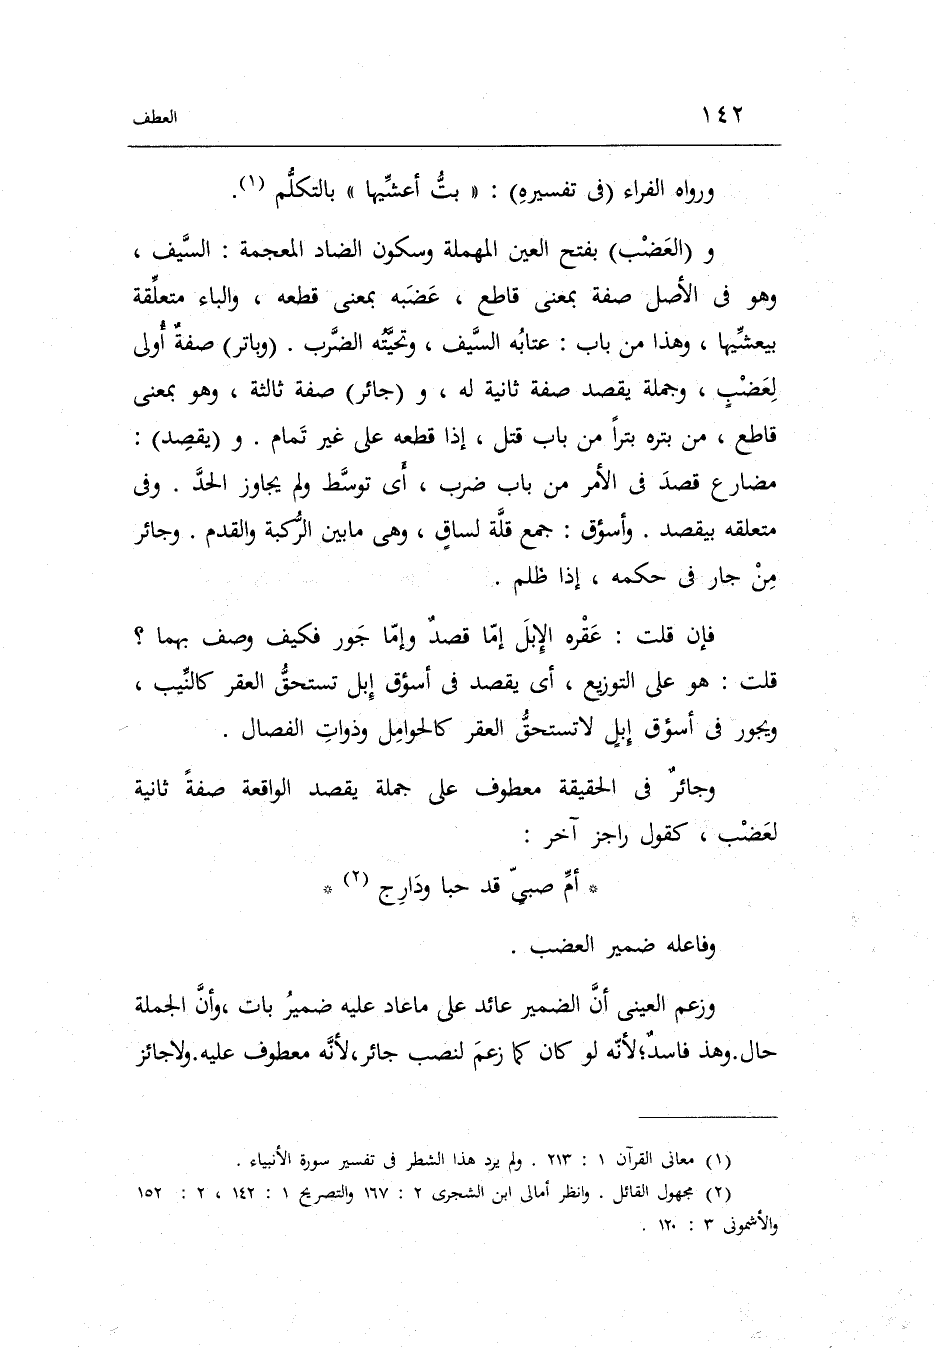 ١٤٢ العطف
ورواه الفراء (فى تفسيرهِ) : « بتُّ أعشِّيها » بالتكلُّم (١).
و (العَضْب) بفتح العين المهملة وسكون الضاد المعجمة : السَّيف ،
وهو فى الأصل صفة بمعنى قاطع ، عَضَبه بمعنى قطعه ، والباء متعلِّقة
بيعشِّيها ، وهذا من باب : عتابُه السَّيف ، وتحيَّتُه الضَّرب . (وباتر) صفةٌ أُولى
لِعَضْبٍ ، وجملة يقصد صفة ثانية له ، و (جائر) صفة ثالثة ، وهو بمعنى
قاطع ، من بتره بتراً من باب قتل ، إذا قطعه على غير تَمام . و (يقصِد) :
مضارع قصدَ فى الأمر من باب ضرب ، أَى توسَّط ولم يجاوز الحدَّ . وفى
متعلقه بيقصد . وأسؤق : جمع قلَّة لساقٍ ، وهى مابين الرُّكبة والقدم . وجائر
مِنْ جار فى حكمه ، إذا ظلم .
فإن قلت : عَقْره الإِبلَ إمّا قصدٌ وإمّا جَور فكيف وصف بهما ؟
قلت : هو على التوزيع ، أى يقصد فى أسؤق إِبل تستحقُّ العقر كالنِّيب ،
ويجور فى أسؤق إِبلٍ لاتستحقُّ العقر كالحوامِل وذواتِ الفصال .
وجائرٌ فى الحقيقة معطوف على جملة يقصد الواقعة صفةً ثانية
لعَضْب ، كقول راجز آخر :
* أمِّ صبيٍّ قد حبا ودَارِج (٢) *
وفاعله ضمير العضب .
وزعم العينى أنَّ الضمير عائد على ماعاد عليه ضميرُ بات ،وأنَّ الجملة
حال.وهذ فاسدٌ؛لأنّه لو كان كما زعمَ لنصب جائر،لأنَّه معطوف عليه.ولاجائز
(١) معانى القرآن ١ : ٢١٣ . ولم يرد هذا الشطر فى تفسير سورة الأنبياء .
(٢) مجهول القائل . وانظر أمالى ابن الشجرى ٢ : ١٦٧ والتصريح ١ : ١٤٢ ، ٢ : ١٥٢
والأشمونى ٣ : ١٢٠ .